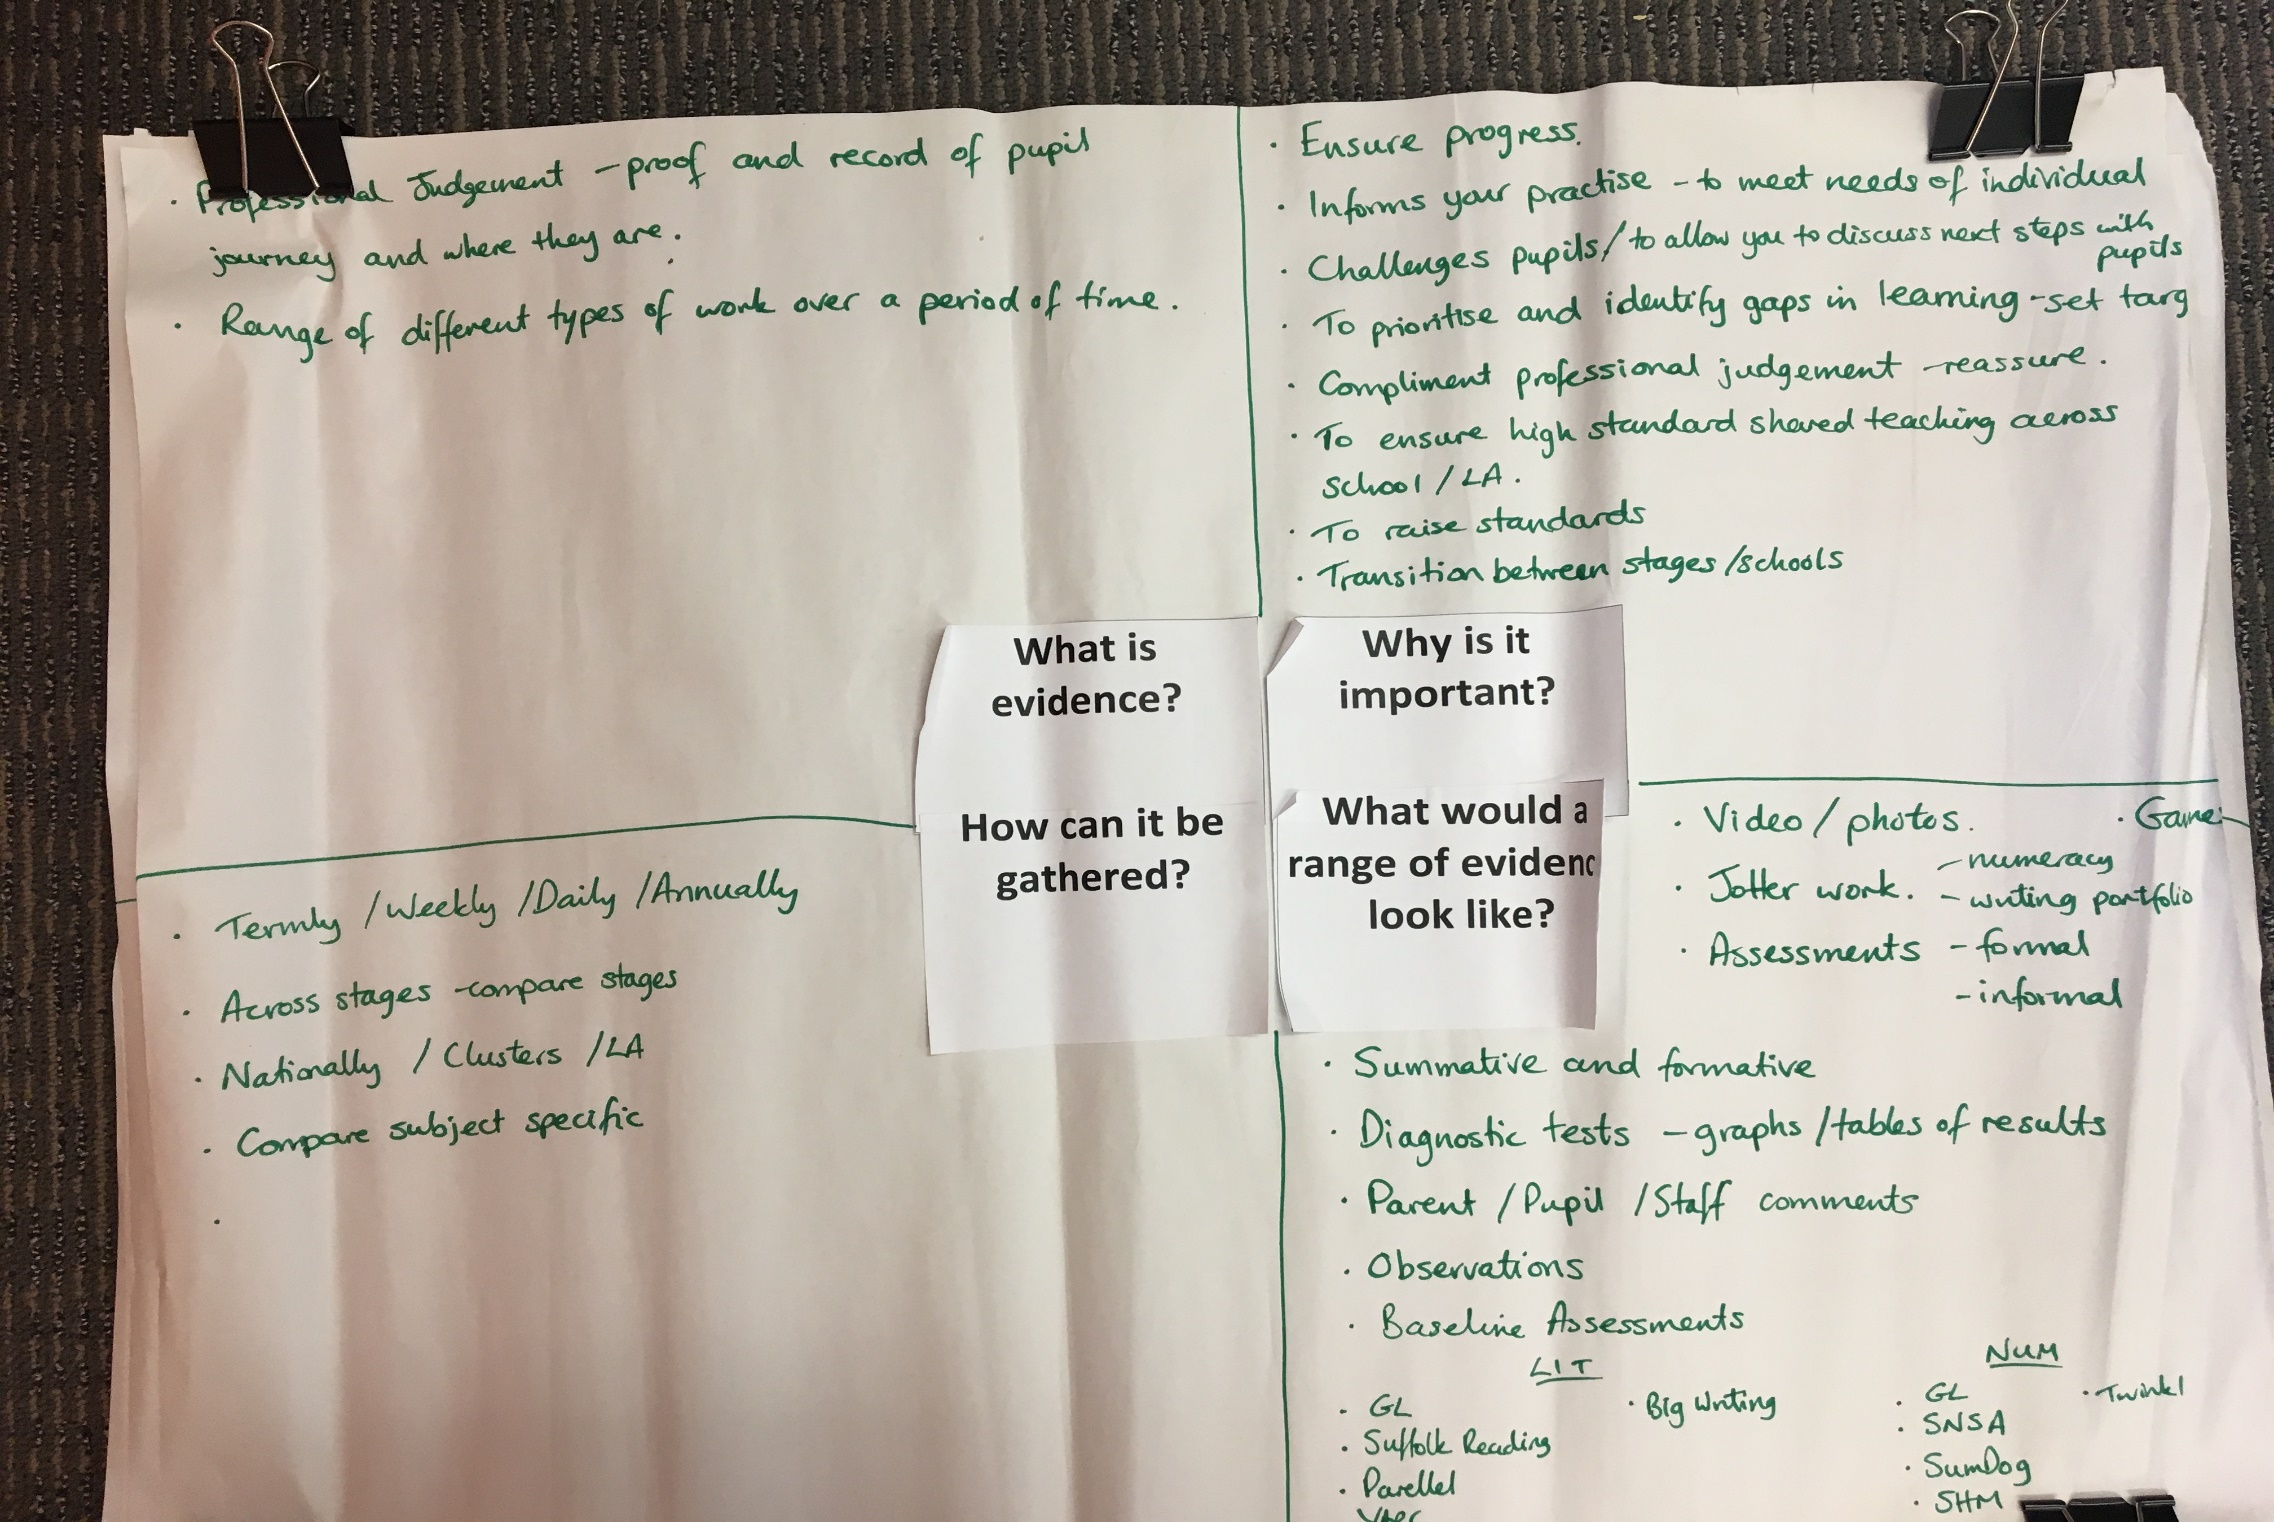 · Professional Judgement - proof and record of pupil
journey and where they are.
· Range of different types of work over a period of time.
· Ensure progress.
· Informs your practise - to meet needs of individual
· Challenges pupils / to allow you to discuss next steps with
pupils
· To prioritise and identify gaps in learning - set targ
· Compliment professional judgement - reassure.
· To ensure high standard shared teaching across
school / LA.
· To raise standards
· Transition between stages / schools
What is
evidence?
Why is it
important?
How can it be
gathered?
What would a
range of evidenc
look like?
· Termly / Weekly / Daily / Annually
· Across stages - compare stages
· Nationally / Clusters / LA
· Compare subject specific
·
· Video / photos. · Game
· Jotter work. - numeracy
- writing portfolio
· Assessments - formal
- informal
· Summative and formative
· Diagnostic tests - graphs / tables of results
· Parent / Pupil / Staff comments
· Observations
· Baseline Assessments
LIT
· GL
· Big Writing
· Suffolk Reading
· Parellel
NUM
· GL
· Twinkl
· SNSA
· SumDog
· SHM